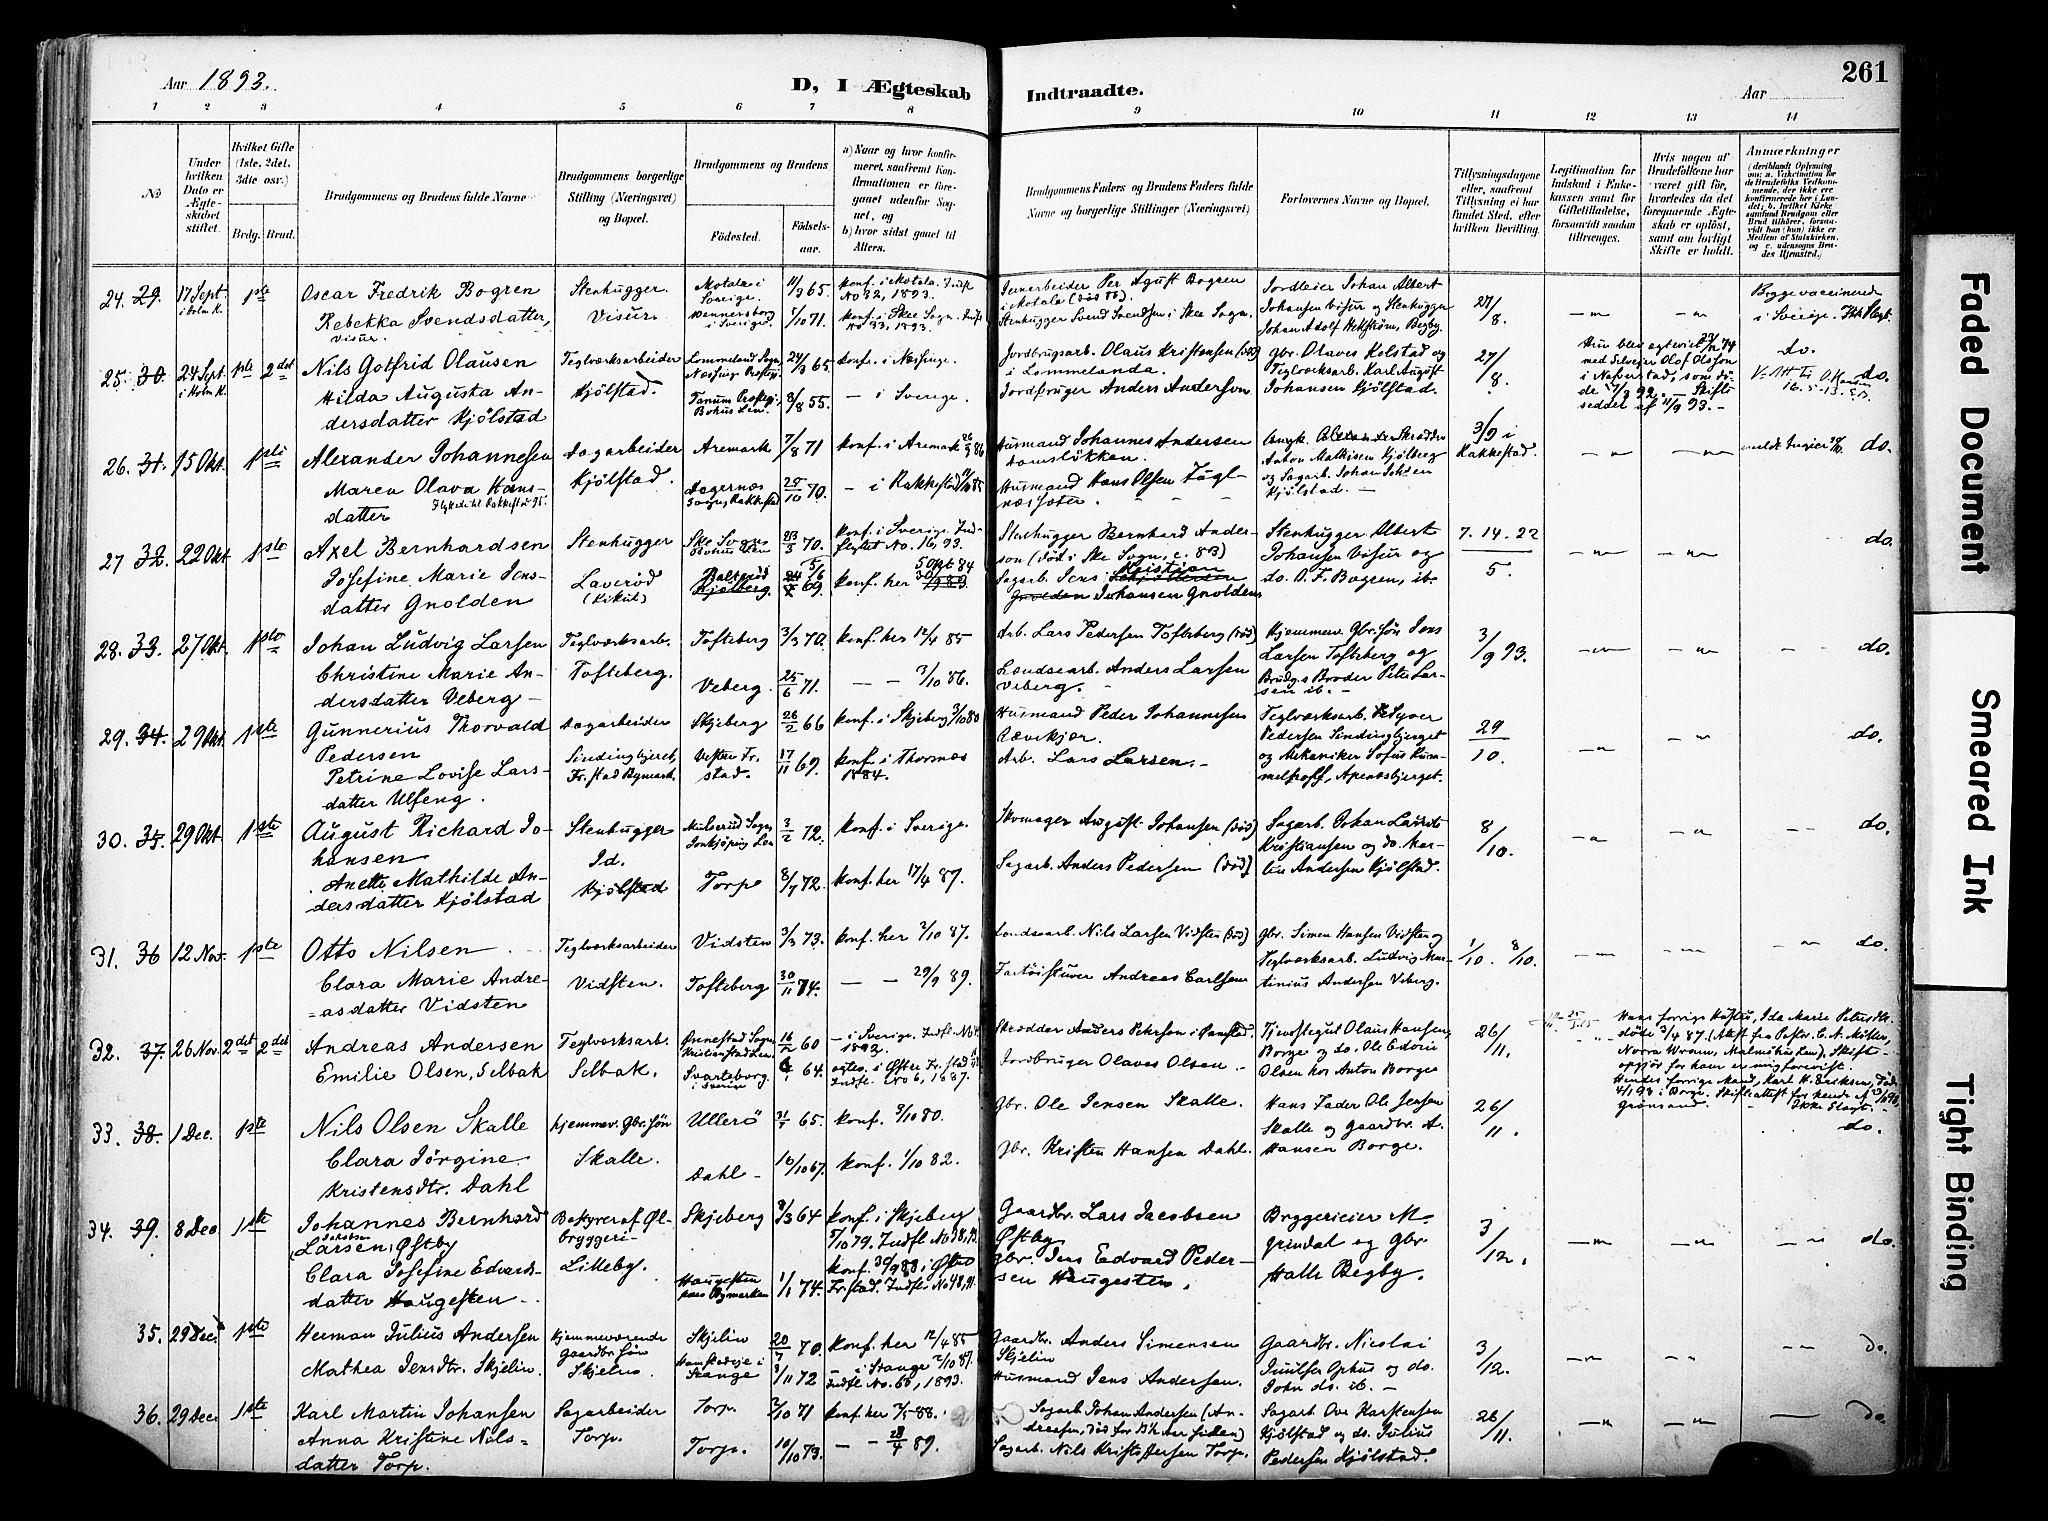 Aar 1893.
D, I Ægteskab
Indtraadte.
Aar
261
1 2 3 4 5 6 7 8 9 10 11 12 13 14
No
Under hvilken Dato er Ægteskabet stiftet.
Hvilket Gifte (1ste, 2det, 3die osv.)
Brdg. Brud.
Brudgommens og Brudens fulde Navne
Brudgommens borgerlige Stilling (Næringsvei) og Bopæl.
Brudgommens og Brudens
Fødested.
Fødselsaar.
a) Naar og hvor konfirmeret, saafremt Konfirmationen er foregaaet udenfor Sognet, og
b) hvor sidst gaaet til Alters.
Brudgommens Faders og Brudens Faders fulde Navne og borgerlige Stillinger (Næringsvei)
Forlovernes Navne og Bopæl.
Tillysningsdagene eller, saafremt Tillysning ei har fundet Sted, efter hvilken Bevilling.
Legitimation for Indskud i Enkekassen samt for Giftetilladelse, forsaavidt saadan tiltrænges.
Hvis nogen af Brudefolkene har været gift før, hvorledes da det foregaaende Ægteskab er opløst, samt om lovligt Skifte er holdt.
Anmærkninger
24. 29. 17 Sept. i Holm K. 1ste
Oscar Fredrik Bogren
Rebekka Svendsdatter,
Visur.
Stenhugger.
Visur.
Motala i Sverige. 11/9 65.
Wennersborg i Sverige. 1/10 71.
konf. i Motala. Indfl No 32, 1893.
konf. i Skee Sogn. Indfl No 33, 1893.
Stenhugger Svend Svendsen i Skee Sogn.
Jordleier Johan Albert
Johansen Visur og Stenhugger
Johan Adolf Hekström, Begby.
27/8.
Begge vaccinerede
i Sverige.
25. 30. 24 Sept. i Holm K. 1ste 2det
Nils Gotfrid Olausen
Hilda Augusta An-
dersdatter Kjölstad
Teglværksarbeider
Kjölstad.
Lommeland Sogn, 24/3 65.
Tanums Prestegj. Bohus Len. 8/8 55.
konf. i Næsinge.
— i Sverige.
Jordbrugsarb. Olaus Kristensen (død)
i Lommelanda.
Jordbruger Anders Anderson
Gbr. Olaves Kolstad og
Teglværksarb. Karl August
Johansen Kjölstad.
27/8.
med Selveier Olof Olsson
do. do.
26. 31. 15 Okt. 1ste
Alexander Johannesen
Maren Olava Hans-
datter
Dagarbeider
Kjölstad.
Aremark 7/8 71
Degernæs Sogn, Rakkestad 25/10 70.
konf. i Aremark
— i Rakkestad
Husmand Johannes Andersen
Husmand Hans Olsen
Anton Mathisen Kjölberg
og Sagarb. Johan Johsen
Kjölstad.
3/9 i Rakkestad.
do.
27 32. 22 Okt 1ste
Axel Bernhardsen
Josefine Marie Jens-
datter Gnolden
Stenhugger
Laverød
(Kikut)
Ske Sogn Bohus Len 23/3 70.
Kjölberg. 69.
konf. i Sverige. Ind-
flyttet No. 16, 93.
konf. her 5 Okt 84
Stenhugger Bernhard Ander-
son (død i Ske Sogn, c. 83)
Sagarb. Jens Kristian
Gnolden Johansen Gnolden
Stenhugger Albert
Johansen Visur og
do. O. F. Bogren, ib.
7. 14. 22
5.
do.
28. 33. 27 Okt. 1ste
Johan Ludvig Larsen
Christine Marie An-
dersdatter Veberg —
Teglværksarb.
Tofteberg.
Tofteberg 3/3 70.
Veberg. 25/6 71.
konf. her 12/4 85
— — 3/10 86.
Arb. Lars Pedersen Tofteberg (død)
Landsearb. Anders Larsen
Veberg.
Hjemmev. Gbr. Søn Jens
Larsen Tofteberg og
Brudg.s Broder Peter Lar-
sen ib. —
3/9 93.
do.
29. 34. 29 Okt 1ste
Gunnerius Thorvald
Pedersen
Petrine Lovise Lars-
datter Ulfeng.
Dagarbeider
Sindingbjeret,
Fr.stad Bymark.
Skjeberg 26/2 66
Vestre Fr.stad. 17/11 69.
konf. i Skjeberg 3/10 80
konf. i Thorsnæs
1884.
Husmand Peder Johannesen
Rævekjær.
Arb. Lars Larsen. —
Teglværksarb. Syver
Pedersen Sindingbjerget
og Mekaniker Sofus Rum-
melhoff, Apenæsbjerget.
29/10.
do.
30. 35. 29 Okt 1ste
August Richard Jo-
hansen
Anette Mathilde An-
dersdatter Kjölstad
Stenhugger
Id.
Kjölstad
Mulserud Sogn Jonkjöping Len 3/2 72.
Torp 8/7 72.
konf. i Sverige.
konf. her 17/4 87.
Skomager August Johansen (død)
Sagarb. Anders Pedersen (død)
Sagarb. Johan Laurits
Kristiansen og do. Mar-
tin Andersen Kjölstad.
8/10.
do.
31. 36 12 Nov. 1ste
Otto Nilsen
Clara Marie Andre-
asdatter Vidsten
Teglværksarbeider
Vidsten.
Vidsten 3/3 73.
Tofteberg 30/11 74.
konf. her 2/10 87.
— — 29/9 89.
Landsarb. Nils Larsen Vidsten (død)
Andreas Carlsen
Gbr. Simen Hansen Vidsten og
Teglværksarb. Ludvig Mar-
tinius Andersen Veberg.
1/10. 8/10.
do.
32. 37. 26 Nov. 2det 2det
Andreas Andersen
Emilie Olsen, Selbak
Teglværksarb.
Selbak.
Kristianstad Len 16/2 60
Svarteborg i Sverige 64.
— i Sverige.
1893.
Indfl. No 6, 1887.
Skrædder Anders Peterson i Ønnestad.
Jordbruger Olaves Olsen —
Tjenestegut Olaus Hansen,
Borge og do. Ole Edvin
Olsen hos Anton Borge
26/11.
Hans forrige Hustru, Ida Marie Petersdtr.
døde 3/4 87 (Attest fra Pastor C. A. Möller,
Norra Wram, Malmöhus Len). Skift-
Hendes forrige Mand, Karl H. Eriksen, døde
33. 38. 1 Dec. 1ste
Nils Olsen Skalle
Clara Jörgine
Kristensdtr. Dahl
hjemmev. Gbr. Søn
Skalle.
Ullerø 31/7 65.
Dahl — 16/10 67.
konf. 3/10 80.
konf. 1/10 82.
Gbr. Ole Jensen Skalle.
Gbr. Kristen Hansen Dahl.
Hans Fader Ole Jensen
Skalle og Gaardbr. A.
Hansen Borge.
26/11.
do.
34. 39. 8 Dec 1ste
Johannes Bernhard
Larsen, Østby
Clara Josefine Edvards-
datter Haugesten —
Bestyrer af Øl-
bryggeri
Lilleby.
Skjeberg 8/3 64
Haugesten 1/1 74.
konf. i Skjeberg
5/10 79. Indfl No 38, 92.
konf. 30/9 88 i Østre
Fr.stad. Indfl. No 48, 91.
Gaardbr. Lars Jacobsen
Østby
Gbr. Jens Edvard Peder-
sen Haugesten.
Bryggerieier M.
Grindal og Gbr
Halle Begby.
3/12.
do.
35. 29 Dec. 1ste
Herman Julius Andersen
Mathea Jensdtr. Skjelin
Hjemmeværende
Gaardbr. Søn
Skjelin
Skjelin 20/7 70.
Stange 3/11 72
konf. her 12/4 85
— i Stange 2/10 87.
Indfl No. 66, 1893.
Gaardbr. Anders Simensen
Skjelin
Husmand Jens Andersen.
Gaardbr. Nicolai
Juulsen Ophus og do.
John do. ib. —
3/12.
do.
36. 29 Dec. 1ste
Karl Martin Johansen
Anna Kristine Nils-
datter Torp.
Sagarbeider
Torp.
Torp. 2/10 71
Torp. 10/10 73.
konf. her 7/5 88.
— — 28/4 89.
Sagarb. Johan Andersen (An-
dreasen, død for
Sagarb. Nils Kristoffersen Torp.
Sagarb. Ove Karstensen
Kjölstad og do. Julius
Pedersen Kjölstad.
26/11.
do.
Faded Document
Smeared Ink
Tight Binding